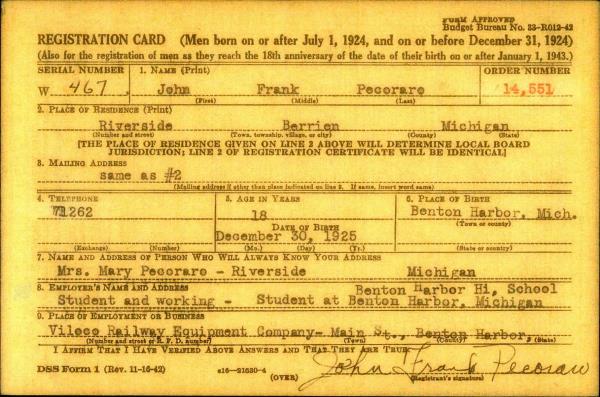 FORM APPROVED
Budget Bureau No. 33-R012-42
REGISTRATION CARD (Men born on or after July 1, 1924, and on or before December 31, 1924)
(Also for the registration of men as they reach the 18th anniversary of the date of their birth on or after January 1, 1943.)
SERIAL NUMBER 1. NAME (Print) ORDER NUMBER
W 467 John Frank Pecoraro 14,551
(First) (Middle) (Last)
2. PLACE OF RESIDENCE (Print)
Riverside Berrien Michigan
(Number and street) (Town, township, village, or city) (County) (State)
[THE PLACE OF RESIDENCE GIVEN ON LINE 2 ABOVE WILL DETERMINE LOCAL BOARD
JURISDICTION; LINE 2 OF REGISTRATION CERTIFICATE WILL BE IDENTICAL]
3. MAILING ADDRESS
same as #2
(Mailing address if other than place indicated on line 2. If same, insert word same)
4. TELEPHONE 5. AGE IN YEARS 6. PLACE OF BIRTH
71262 18 Benton Harbor, Mich.
(Town or county)
DATE OF BIRTH
December 30, 1925
(Exchange) (Number) (Mo.) (Day) (Yr.) (State or country)
7. NAME AND ADDRESS OF PERSON WHO WILL ALWAYS KNOW YOUR ADDRESS
Mrs. Mary Pecoraro - Riverside Michigan
8. EMPLOYER'S NAME AND ADDRESS Benton Harbor Hi, School
Student and working - Student at Benton Harbor, Michigan
9. PLACE OF EMPLOYMENT OR BUSINESS
Viloco Railway Equipment Company- Main St., Benton Harbor,
(Number and street or R. F. D. number) (Town) (County) (State)
I AFFIRM THAT I HAVE VERIFIED ABOVE ANSWERS AND THAT THEY ARE TRUE.
John Frank Pecoraro
DSS Form 1 (Rev. 11-16-42) 16-21630-4 (Registrant's signature)
(OVER)